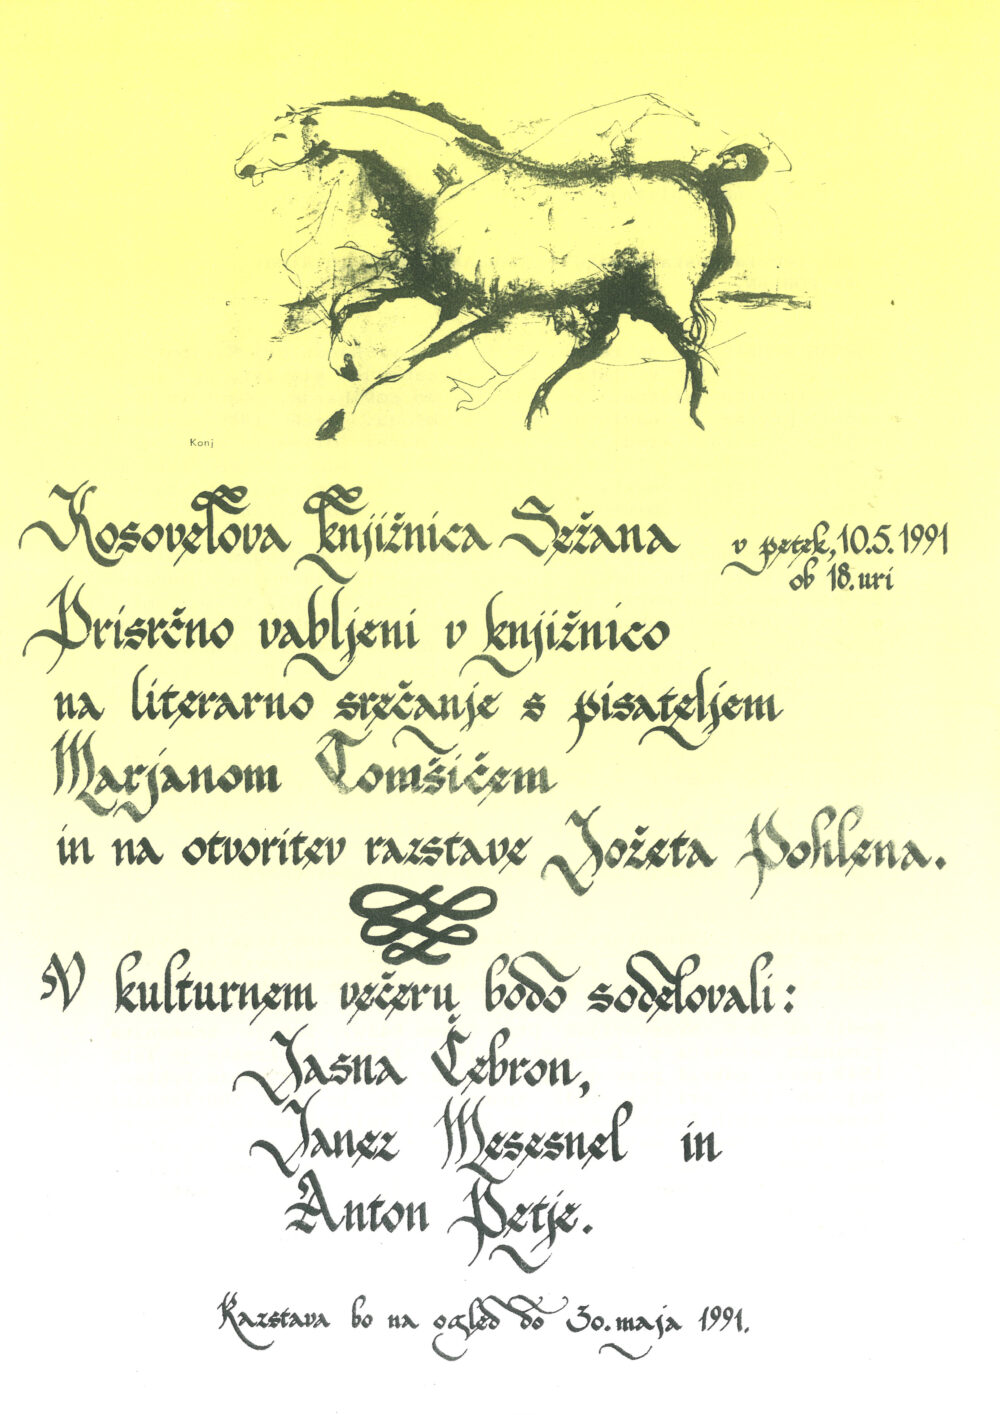 Konj
Kosovelova knjižnica Sežana
v petek, 10.5.1991
ob 18.uri
Prisrčno vabljeni v knjižnico
na literarno srečanje s pisateljem
Marjanom Tomšičem
in na otvoritev razstave Jožeta Pohlena.
V kulturnem večeru bodo sodelovali:
Jasna Čebron,
Janez Mesesnel in
Anton Petje.
Razstava bo na ogled do 30.maja 1991.